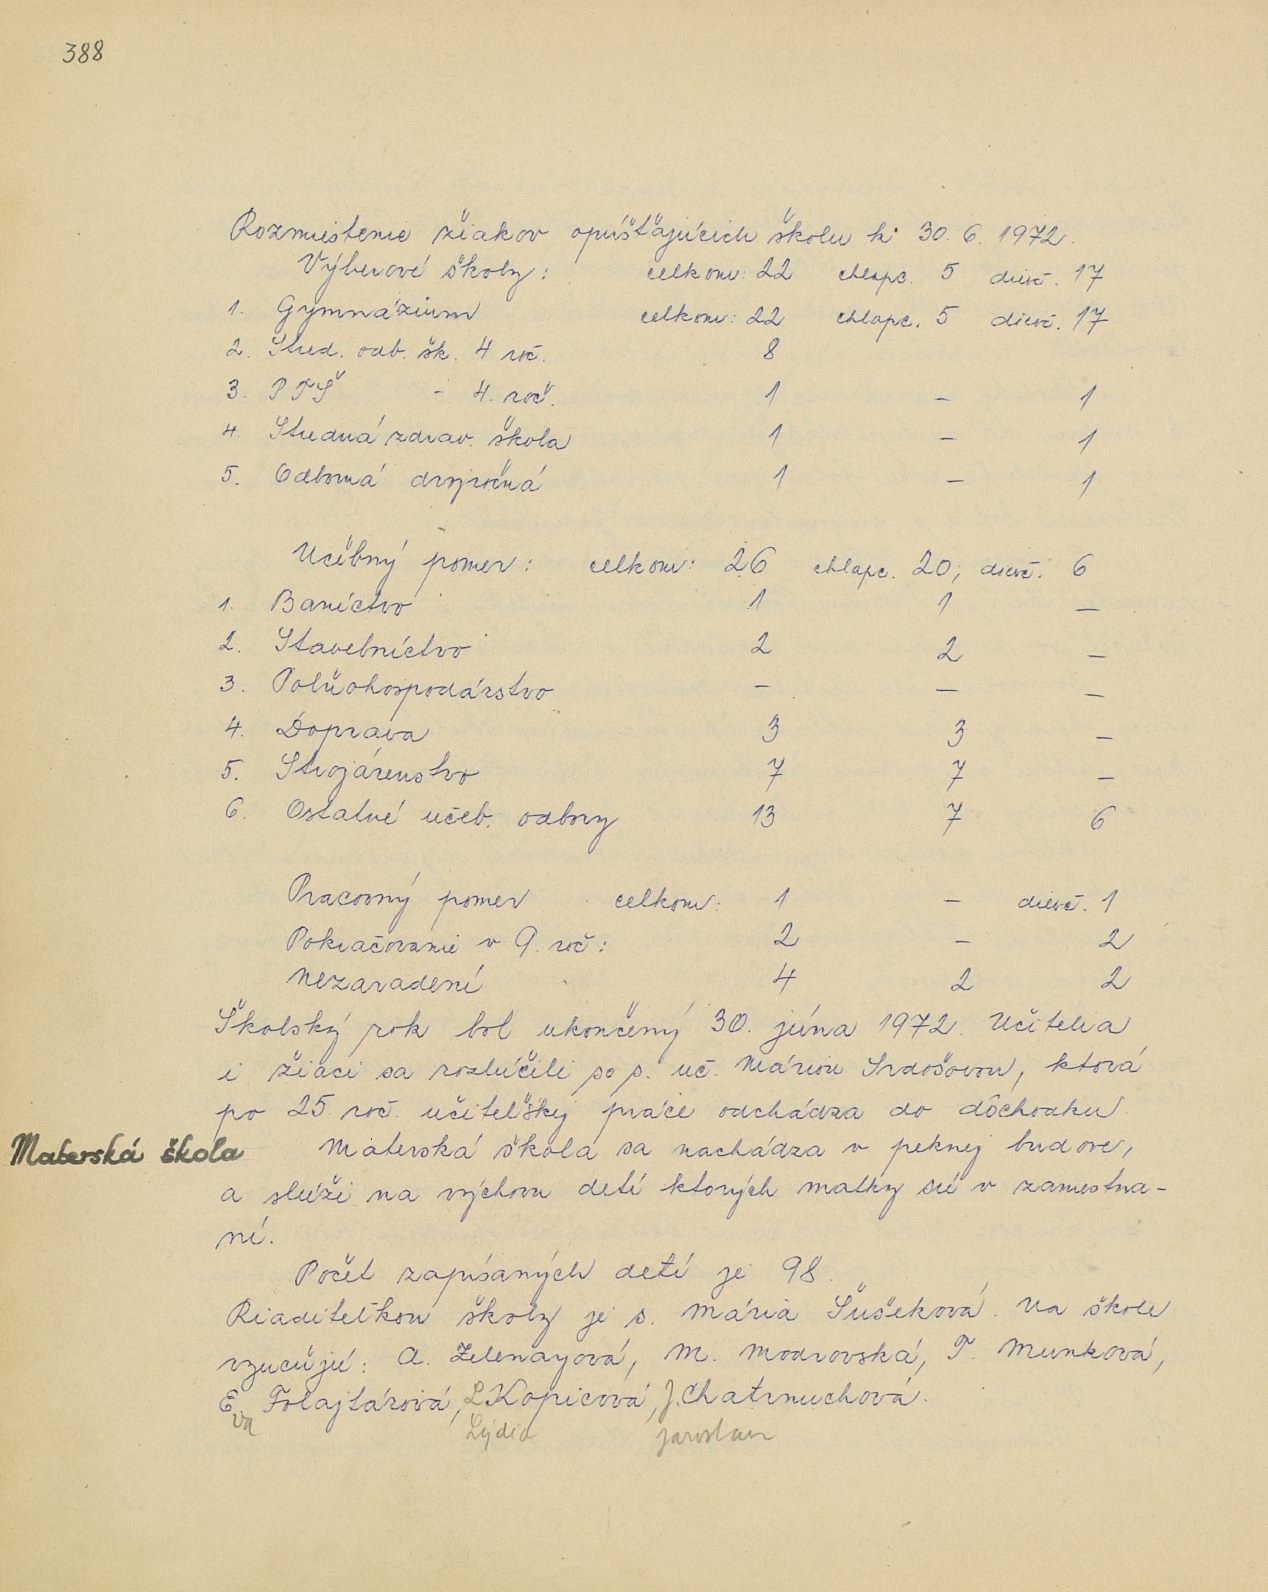 388
Rozmiestenie žiakov opúšťajúcich školu k 30. 6. 1972.
Výberové školy: celkom: 22 chlapc. 5 dievč. 17
1. Gymnázium celkom: 22 chlapc. 5 dievč. 17
2. Stred. odb. šk. 4 roč. 8
3. PTŠ - 4. roč. 1 – 1
4. Stredná zdrav. škola 1 – 1
5. Odborná dvojročná 1 – 1
Učebný pomer: celkom: 26 chlapc. 20, dievč. 6
1. Baníctvo 1 1 –
2. Stavebníctvo 2 2 –
3. Poľnohospodárstvo – – –
4. Doprava 3 3 –
5. Strojárenstvo 7 7 –
6. Ostatné učeb. odbory 13 7 6
Pracovný pomer celkom: 1 – dievč. 1
Pokračovanie v 9. roč: 2 – 2
Nezaradení 4 2 2
Školský rok bol ukončený 30. júna 1972. Učitelia
i žiaci sa rozlúčili so s. uč. Máriou Srdošovou, ktorá
po 25 roč. učiteľskej práce odchádza do dôchodku.
Materská škola
Materská škola sa nachádza v peknej budove,
a slúži na výchovu detí ktorých matky sú v zamestna-
ní.
Počet zapísaných detí je 98.
Riaditeľkou školy je s. Mária Sušeková. Na škole
vyučujú: A. Zelenayová, M. Modrovská, T. Munková,
E. Folajtárová, L. Kopicová, J. Chatrnuchová.
va Lýdia Jaroslav